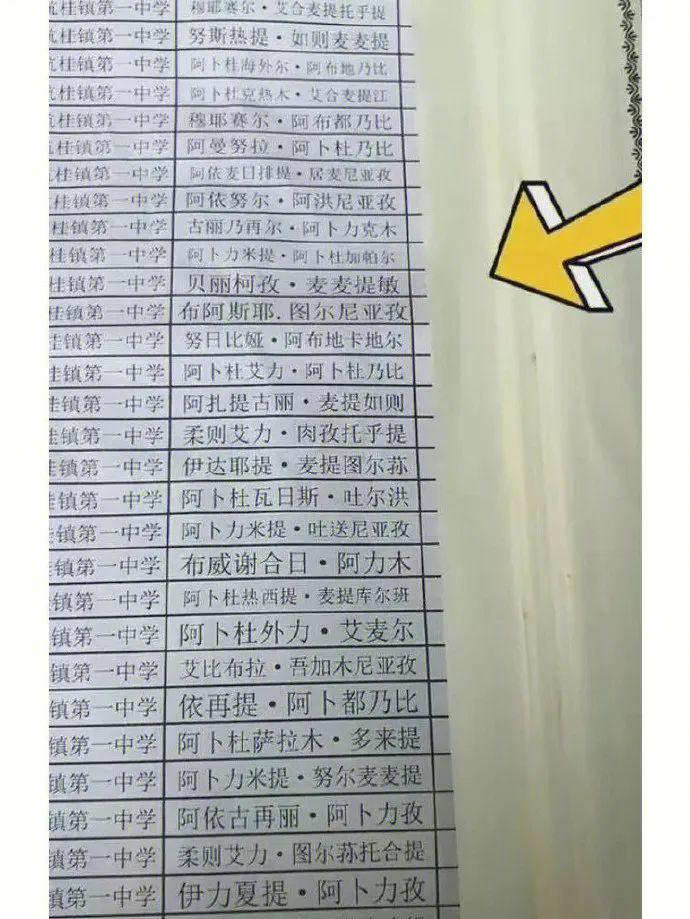 杭桂镇第一中学 穆耶赛尔·艾合麦提托乎提
杭桂镇第一中学 努斯热提·如则麦麦提
杭桂镇第一中学 阿卜杜海外尔·阿布地乃比
杭桂镇第一中学 阿卜杜克热木·艾合麦提江
杭桂镇第一中学 穆耶赛尔·阿布都乃比
杭桂镇第一中学 阿曼努拉·阿卜杜乃比
杭桂镇第一中学 阿依麦日排提·居麦尼亚孜
桂镇第一中学 阿依努尔·阿洪尼亚孜
桂镇第一中学 古丽乃再尔·阿卜力克木
桂镇第一中学 阿卜力米提·阿卜杜加帕尔
桂镇第一中学 贝丽柯孜·麦麦提敏
桂镇第一中学 布阿斯耶.图尔尼亚孜
桂镇第一中学 努日比娅·阿布地卡地尔
桂镇第一中学 阿卜杜艾力·阿卜杜乃比
桂镇第一中学 阿扎提古丽·麦提如则
桂镇第一中学 柔则艾力·肉孜托乎提
桂镇第一中学 伊达耶提·麦提图尔荪
桂镇第一中学 阿卜杜瓦日斯·吐尔洪
桂镇第一中学 阿卜力米提·吐送尼亚孜
镇第一中学 布威谢合日·阿力木
镇第一中学 阿卜杜热西提·麦提库尔班
镇第一中学 阿卜杜外力·艾麦尔
镇第一中学 艾比布拉·吾加木尼亚孜
镇第一中学 依再提·阿卜都乃比
镇第一中学 阿卜杜萨拉木·多来提
镇第一中学 阿卜力米提·努尔麦麦提
镇第一中学 阿依古再丽·阿卜力孜
镇第一中学 柔则艾力·图尔荪托合提
镇第一中学 伊力夏提·阿卜力孜